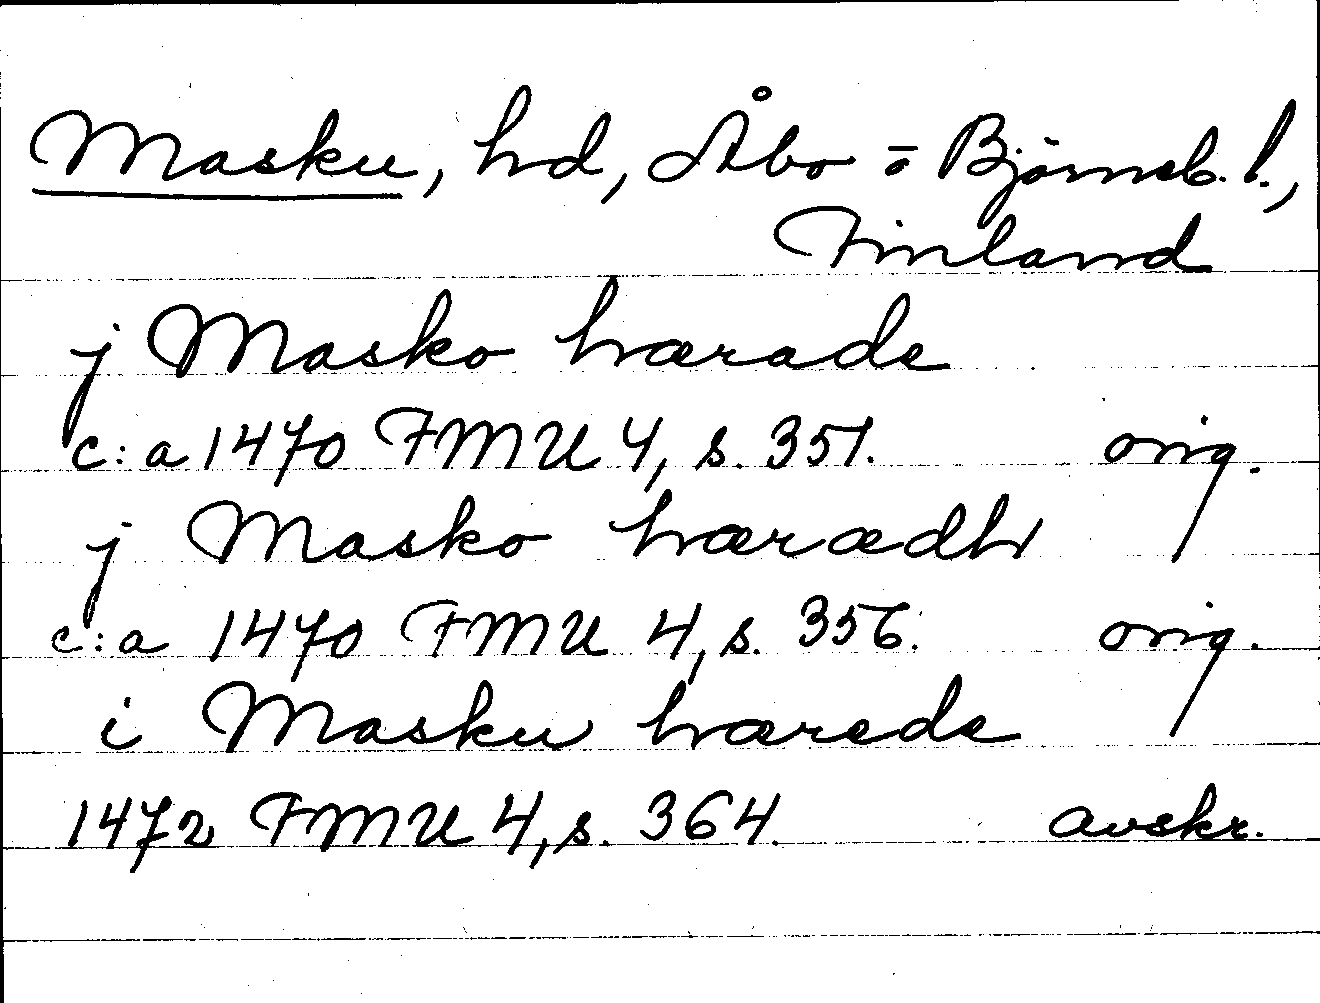 Masku, hd, Åbo o Björneb. l.,
Finland
j Masko hærade
c:a 1470 FMU 4, s. 351. orig.
j Masko hærædh
c:a 1470 FMU 4, s. 356. orig.
i Masku hærede
1472 FMU 4, s. 364. avskr.